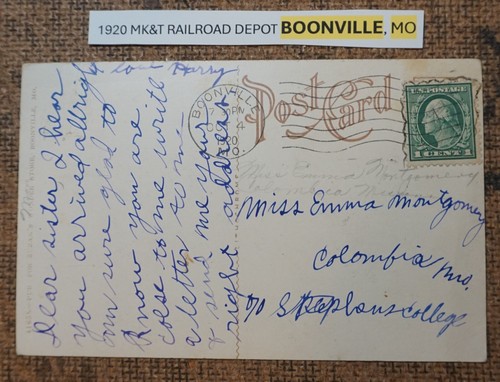 1920 MK&T RAILROAD DEPOT BOONVILLE, MO
Post Card
BOONVILLE
PM
4
1920
MO.
U.S. POSTAGE
Miss Emma Montgomery
Columbia Missouri
Miss Emma Montgomery
Colombia Mo.
℅ Stephans College
Dear sister, I hear
you arrived allright
am sure glad to
know you are
colse to me write
a letter to me
& send me your
right address
love Harry
STORE, BOONVILLE, MO.